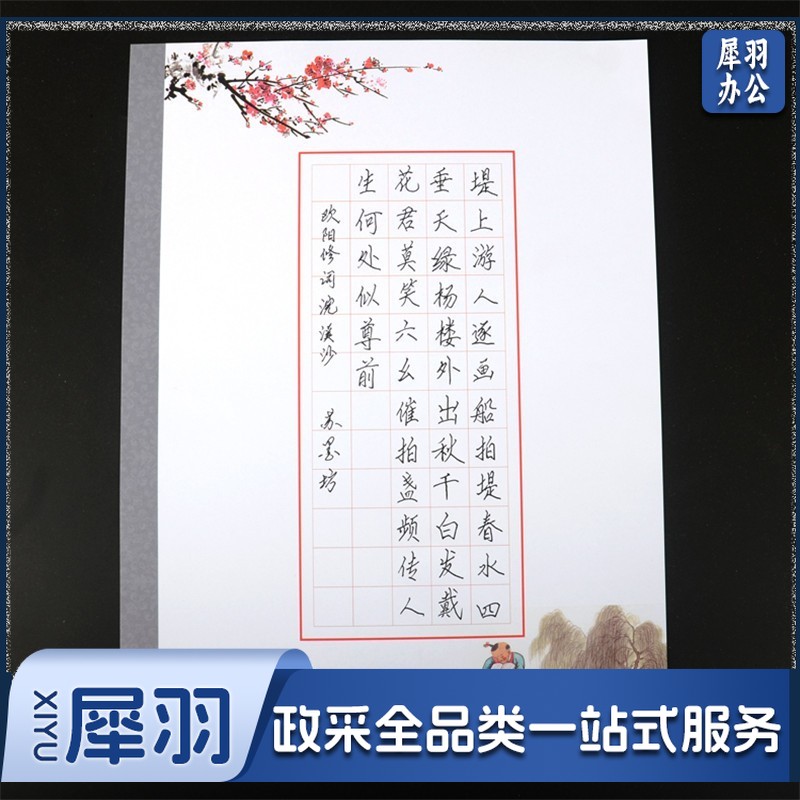 犀羽
办公
堤上游人逐画船拍堤春水四
垂天绿杨楼外出秋千白发戴
花君莫笑六幺催拍盏频传人
生何处似尊前
欧阳修词浣溪沙 苏墨坊
XIYU
犀羽
政采全品类一站式服务